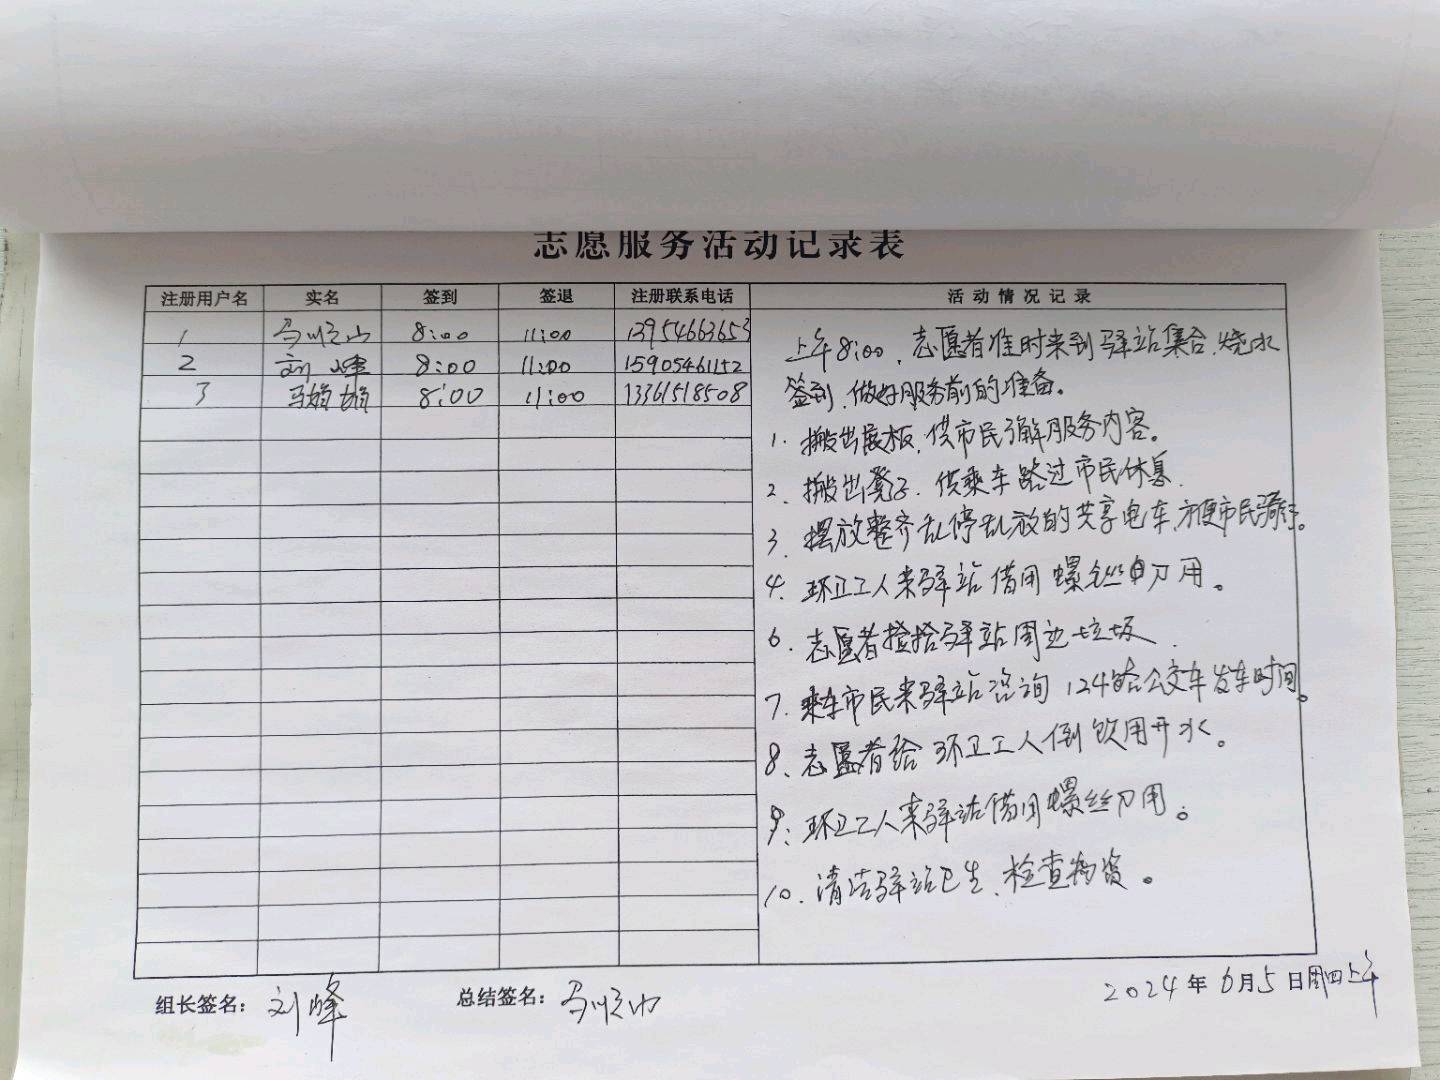 志愿服务活动记录表
注册用户名 实名 签到 签退 注册联系电话 活动情况记录
1 马顺山 8:00 11:00 13954663653
2 刘峰 8:00 11:00 15905461152
3 马娟娟 8:00 11:00 13361518508
上午8:00，志愿者准时来到驿站集合，烧水
签到，做好服务前的准备。
1. 搬出展板，供市民了解服务内容。
2. 搬出凳子，供乘车路过市民休息.
3. 摆放整齐乱停乱放的共享电车，方便市民骑行。
4. 环卫工人来驿站借用螺丝刀用。
6. 志愿者捡拾驿站周边垃圾.
7. 乘车市民来驿站咨询124路公交车发车时间。
8. 志愿者给环卫工人倒饮用开水。
9. 环卫工人来驿站借用螺丝刀用。
10. 清洁驿站卫生，检查物资。
组长签名：刘峰 总结签名：马顺山 2024年6月5日周四上午